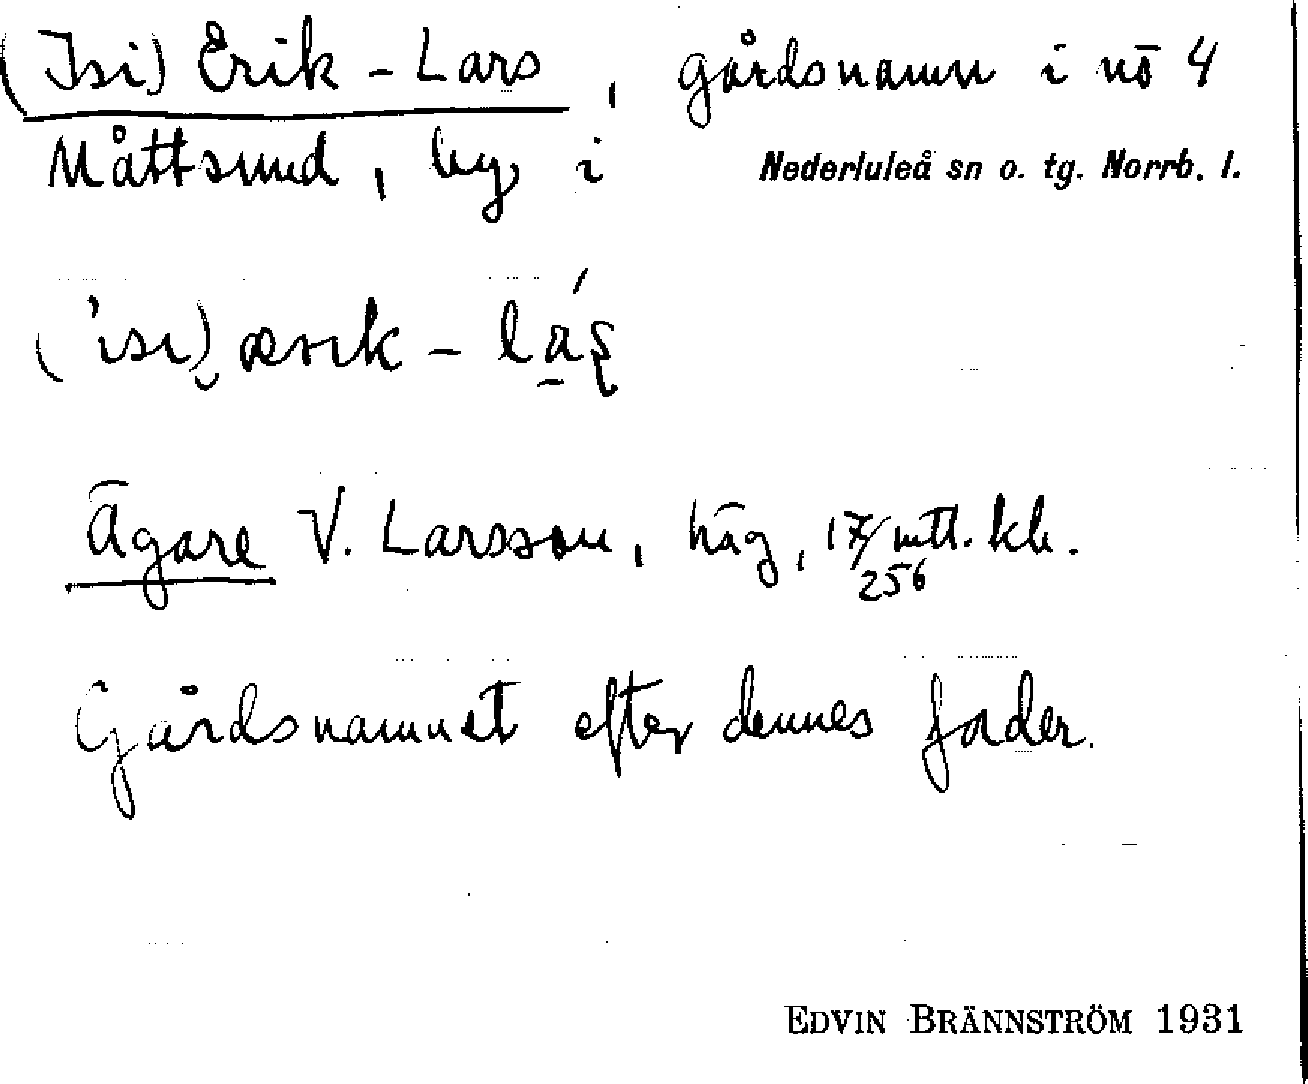 (Isi) Erik - Lars, gårdsnamn i nō 4
Måttsund, by i Nederluleå sn o. tg. Norrb. l.
('isi) ærik - lás̨
Ägare V. Larsson, häg, 17/256 mtl. kh.
Gårdsnamnet efter dennes fader.
EDVIN BRÄNNSTRÖM 1931